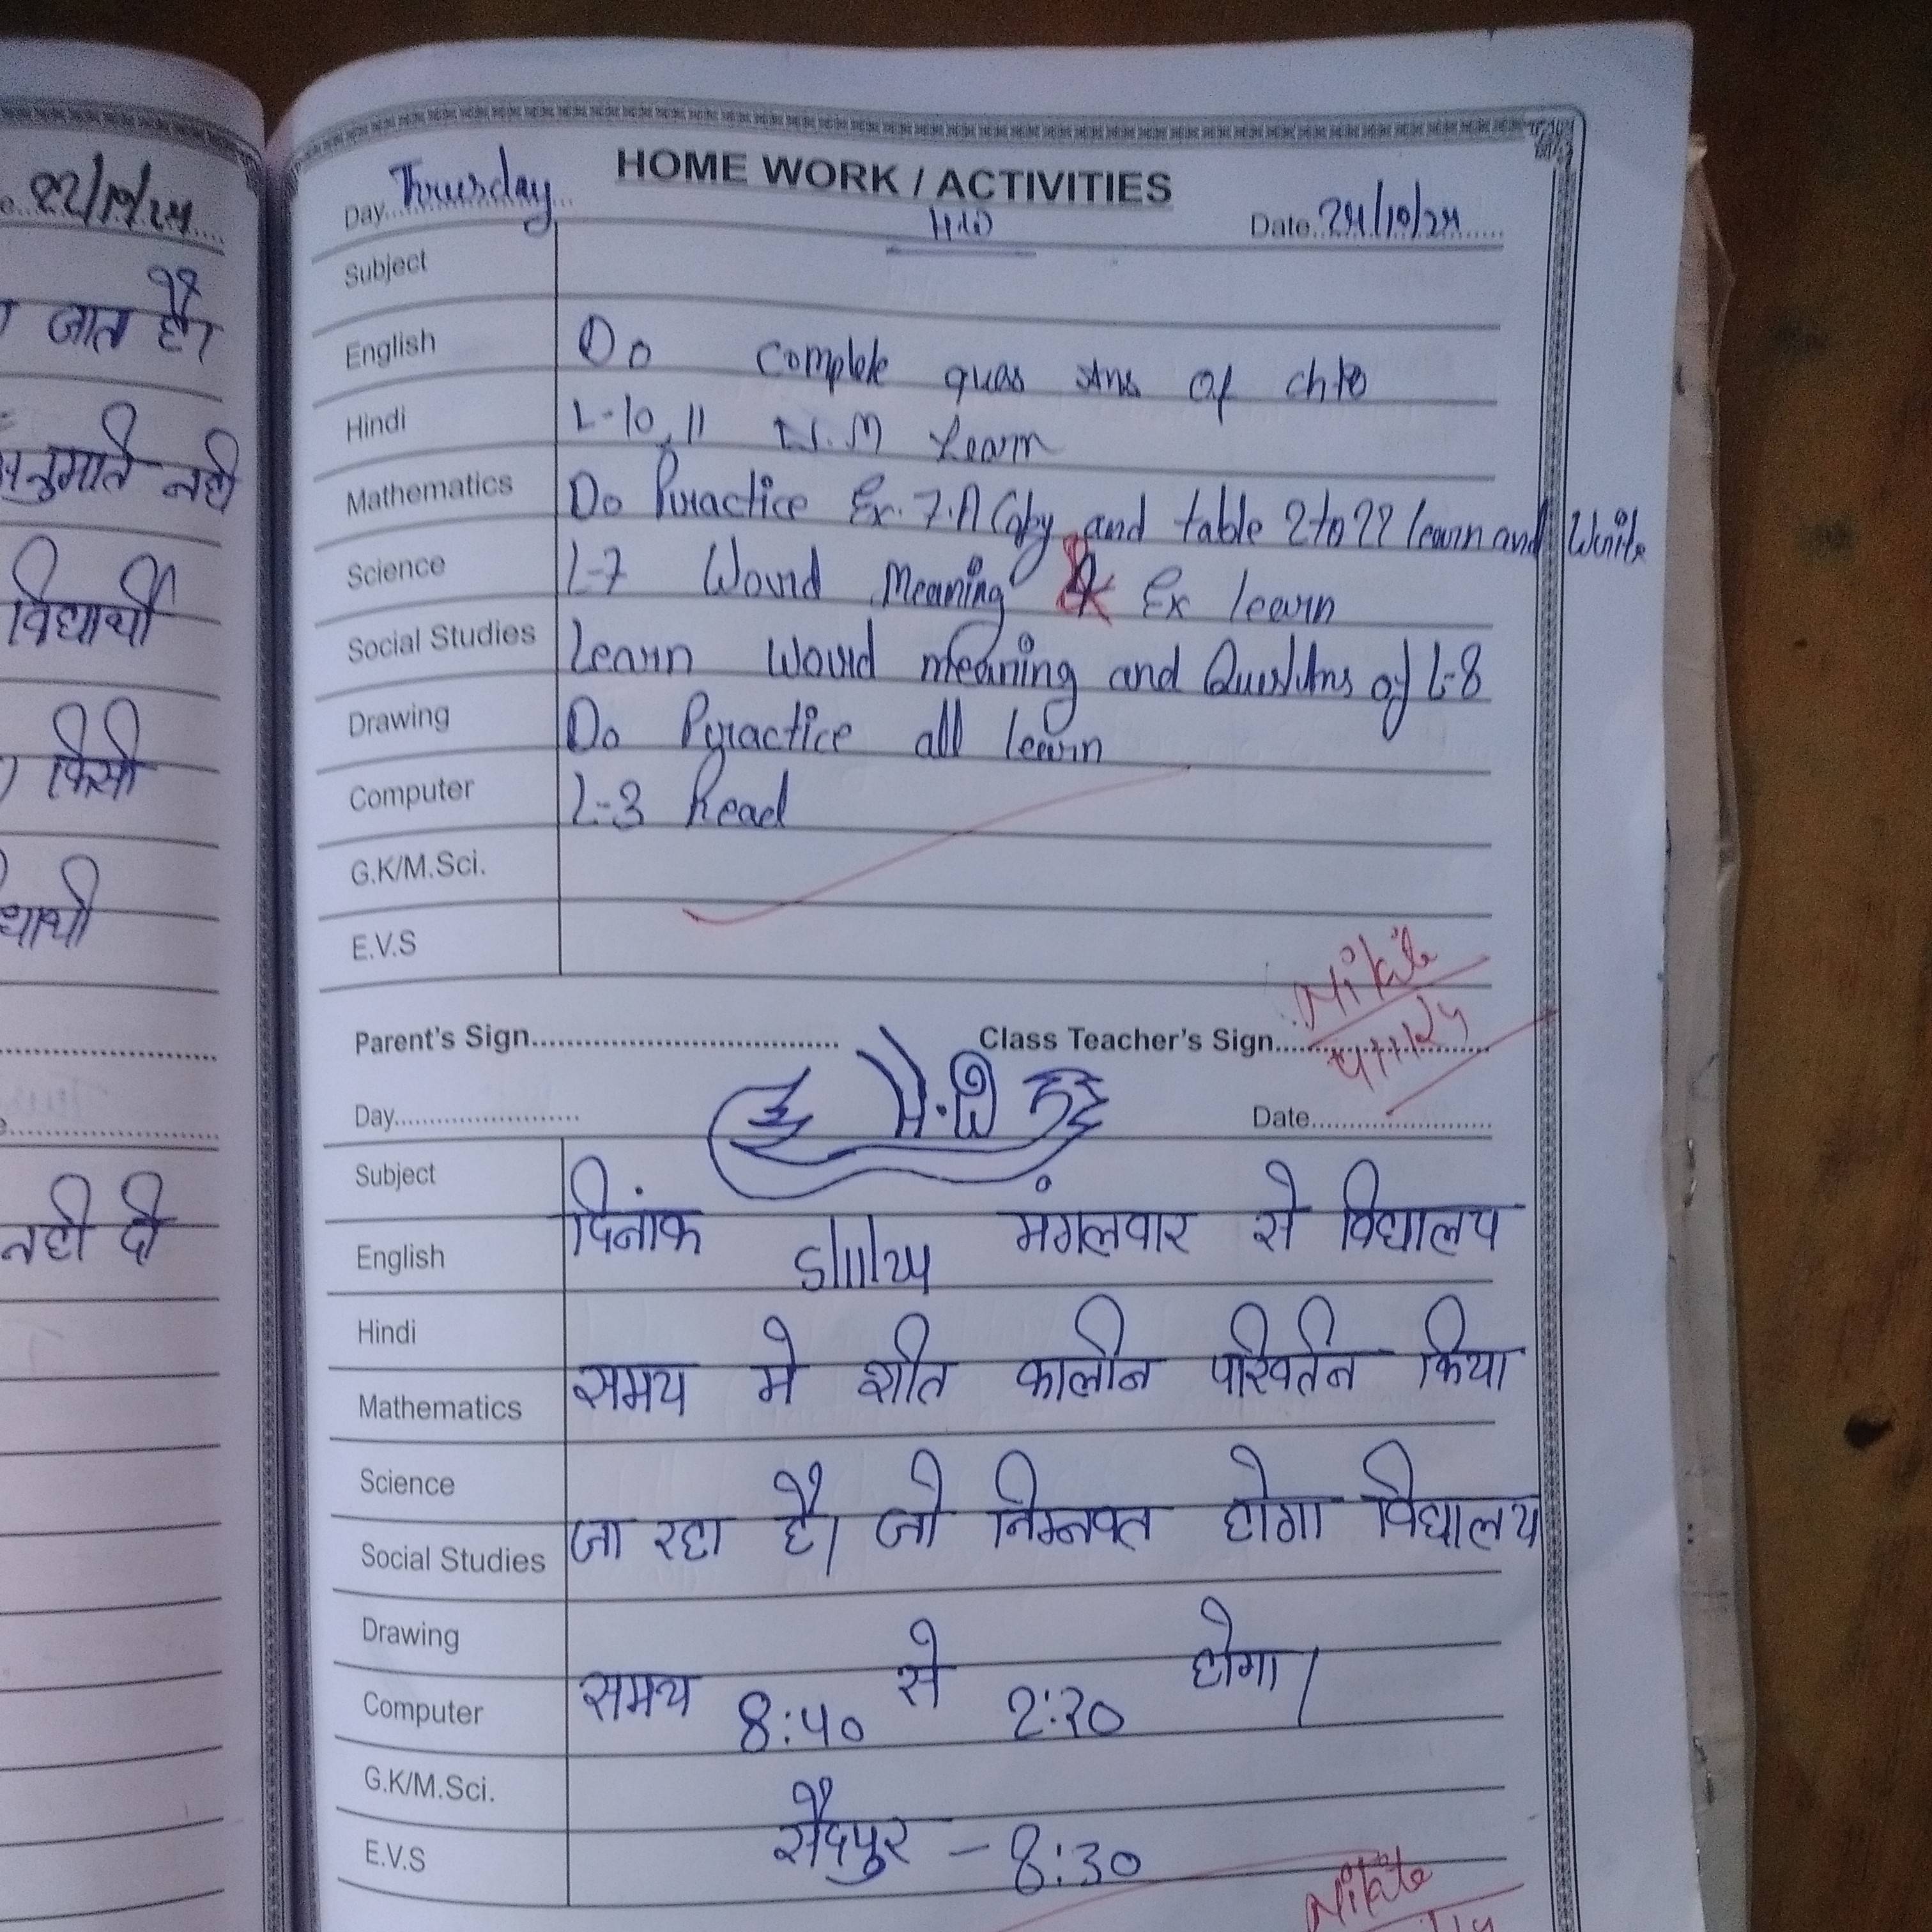 22/10/24
जात है।
नही
विद्यार्थी
किसी
नही दी
HOME WORK / ACTIVITIES
Day Thursday
H.W
Date 24/10/24
Subject
English Do complete ques Ans of ch
Hindi L-10,11 Learn
Mathematics Do Practice Ex. 7.A Copy and table 2 to 22 learn and Write
Science L-7 Word Meaning Ex learn
Social Studies Learn Word meaning and Ques/Ans of L-8
Drawing Do Practice all learn
Computer L-3 Read
G.K/M.Sci.
E.V.S
Parent's Sign
Class Teacher's Sign
Day
Date
Subject
दिनांक 5/11/24 मंगलवार से विद्यालय
English
Hindi
समय मे शीत कालीन परिवर्तन किया
Mathematics
Science
जा रहा है। जो निम्नवत होगा विद्यालय
Social Studies
Drawing
समय 8:40 से 2:20 होगा।
Computer
G.K/M.Sci.
सैदपुर - 8:30
E.V.S